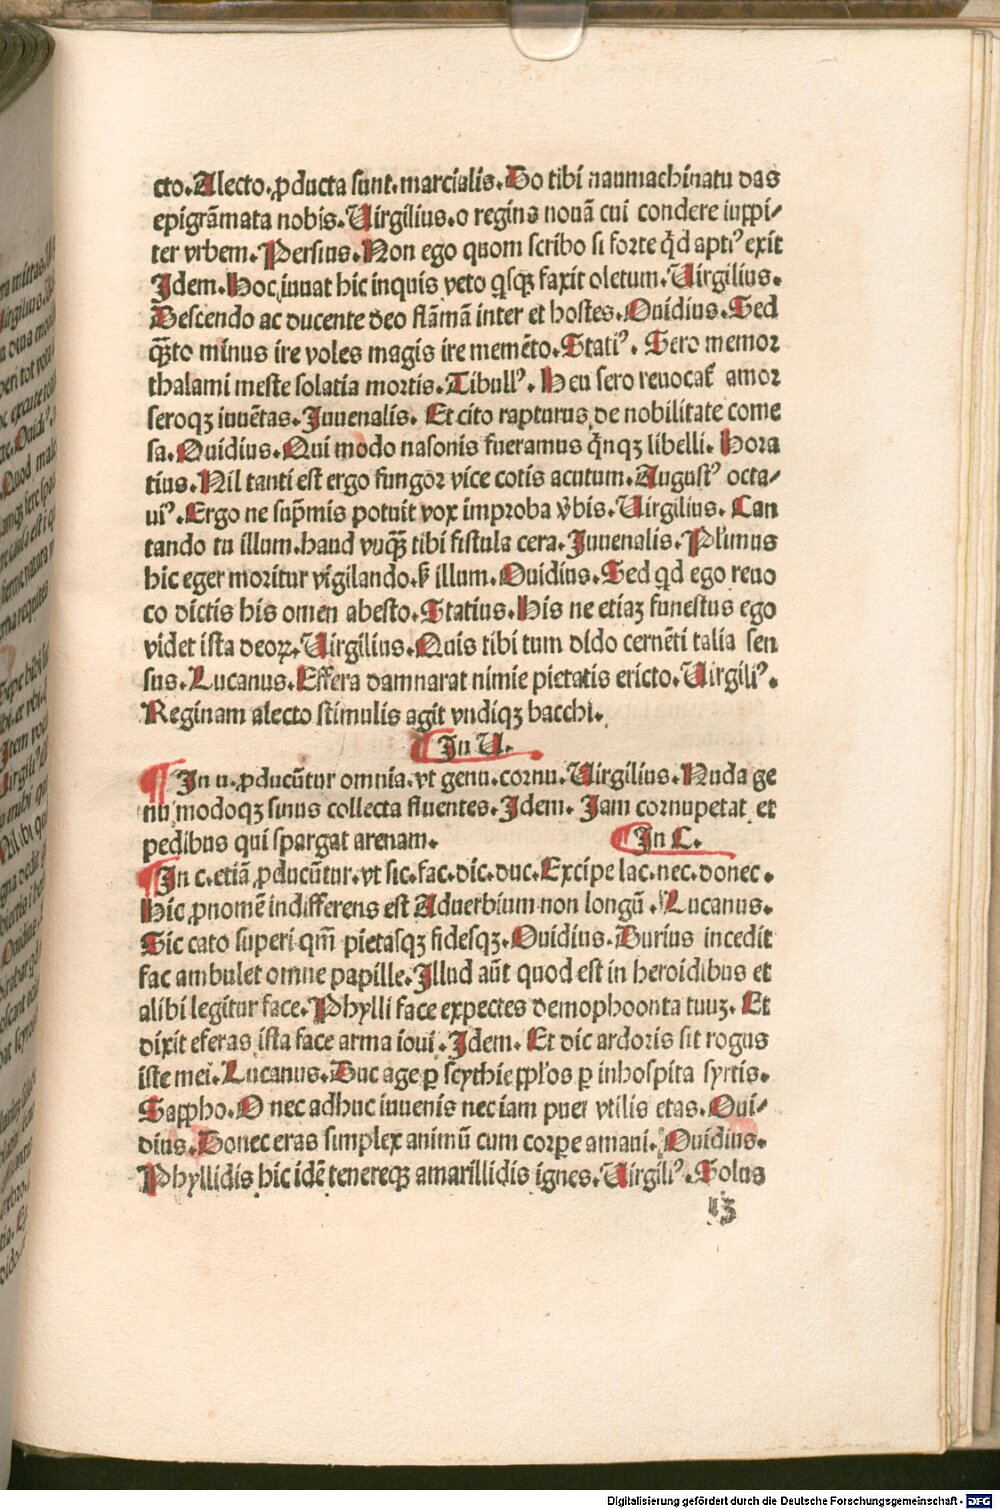 cto. Alecto. ꝓducta sunt. marcialis. Do tibi naumachinatu das
epigrãmata nobis. Uirgilius. o regina nouã cui condere iuppi/
ter vrbem. Persius. Non ego quom scribo si forte qd̉ apti᾽ exit
Idem. Hoc iuuat hic inquis veto qsqꝫ faxit oletum. Uirgilius.
Descendo ac ducente deo flãmã inter et hostes. Ouidius. Sed
qꝫto minus ire voles magis ire memẽto. Stati᾽. Sero memor
thalami meste solatia mortis. Tibull᾽. Heu sero reuocat̃ amor
seroqꝫ iuuẽtas. Iuuenalis. Et cito rapturus de nobilitate come
sa. Ouidius. Qui modo nasonis fueramus qͥnqꝫ libelli. Hora
tius. Nil tanti est ergo fungor vice cotis acutum. August᾽ octa/
ui᾽. Ergo ne sup̃mis potuit vox improba v̓bis. Uirgilius. Can
tando tu illum. haud vnqꝫ tibi fistula cera. Iuuenalis. Plͬimus
hic eger moritur vigilando. ß illum. Ouidius. Sed qd ego reuo
co dictis his omen abesto. Statius. His ne etiaꝫ funestus ego
videt ista deoꝝ. Uirgilius. Quis tibi tum dido cernẽti talia sen
sus. Lucanus. Effera damnarat nimie pietatis ericto. Uirgili᾽.
Reginam alecto stimulis agit vndiqꝫ bacchi.
In U.
In u. ꝓducũtur omnia. vt genu. cornu. Uirgilius. Nuda ge
nu modoqꝫ sinus collecta fluentes. Idem. Iam cornupetat et
pedibus qui spargat arenam.
In C.
In c. etiã ꝓducũtur. vt sic. fac. dic. duc. Excipe lac. nec. donec.
Hic ꝓnomẽ indifferens est Aduerbium non longũ. Lucanus.
Sic cato superi qm̃ pietasqꝫ fidesqꝫ. Ouidius. Durius incedit
fac ambulet omne papille. Illud aũt quod est in heroidibus et
alibi legitur face. Phylli face expectes demophoonta tuuꝫ. Et
dixit eferas ista face arma ioui. Idem. Et dic ardoris sit rogus
iste mei. Lucanus. Duc age ꝑ scythie pplo̓s ꝑ inhospita syrtis.
Sappho. O nec adhuc iuuenis nec iam puer vtilis etas. Oui/
dius. Donec eras simplex animũ cum corꝑe amaui. Ouidius.
Phyllidis hic idẽ tenereqꝫ amarillidis ignes. Uirgili᾽. Solus
Digitalisierung gefördert durch die Deutsche Forschungsgemeinschaft - DFG